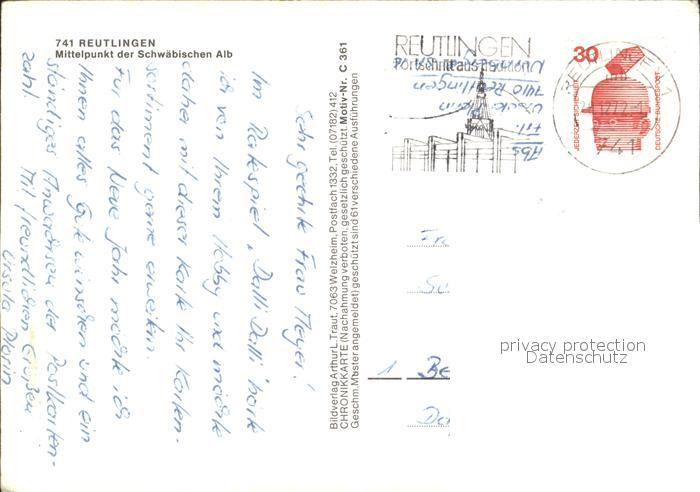 741 REUTLINGEN
Mittelpunkt der Schwäbischen Alb
Sehr geehrte Frau Meyer!
Im Ratespiel „Dalli Dalli" hörte
ich von Ihrem Hobby und möchte
daher mit dieser Karte Ihr Karten-
sortiment gerne erweitern.
Für das Neue Jahr möchte ich
Ihnen alles Gute wünschen und ein
ständiges Anwachsen der Postkarten-
zahl.
Mit freundlichen Grüßen
Ursula
Bildverlag Arthur L. Traut, 7063 Welzheim, Postfach 1332, Tel. (07182) 412
CHRONIKKARTE (Nachahmung verboten, gesetzlich geschützt. Motiv-Nr. C 361
Geschm. Muster angemeldet) geschützt sind 61 verschiedene Ausführungen
REUTLINGEN
Fortschritt aus Tradition
Abs
Ursula
7410 Reutlingen
30
JEDERZEIT SICHERHEIT
DEUTSCHE BUNDESPOST
REUTLINGEN 1
741
Fr
1 Be
privacy protection
Datenschutz